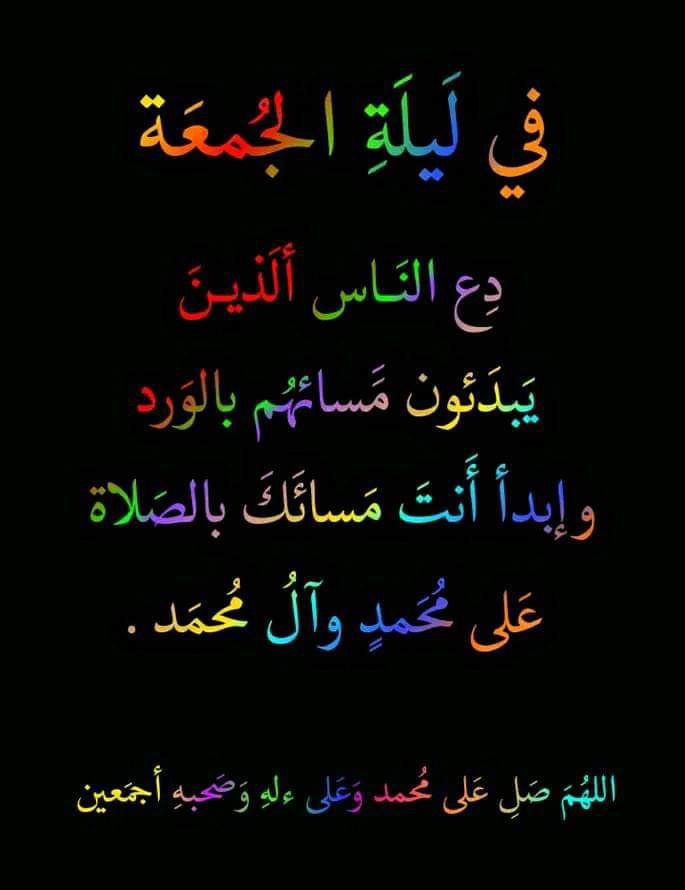 في لَيلَةِ الجُمعَة
دِع النَاس ألَذينَ
يَبدَئون مَسائهُم بالوَرد
وإبدأ أَنتَ مَسائَكَ بالصَلاة
عَلى مُحَمدٍ وآلُ مُحمَد .
اللهُمَ صَلِ عَلى مُحمد وَعَلى ءلهِ وَصَحبهِ أجمَعين